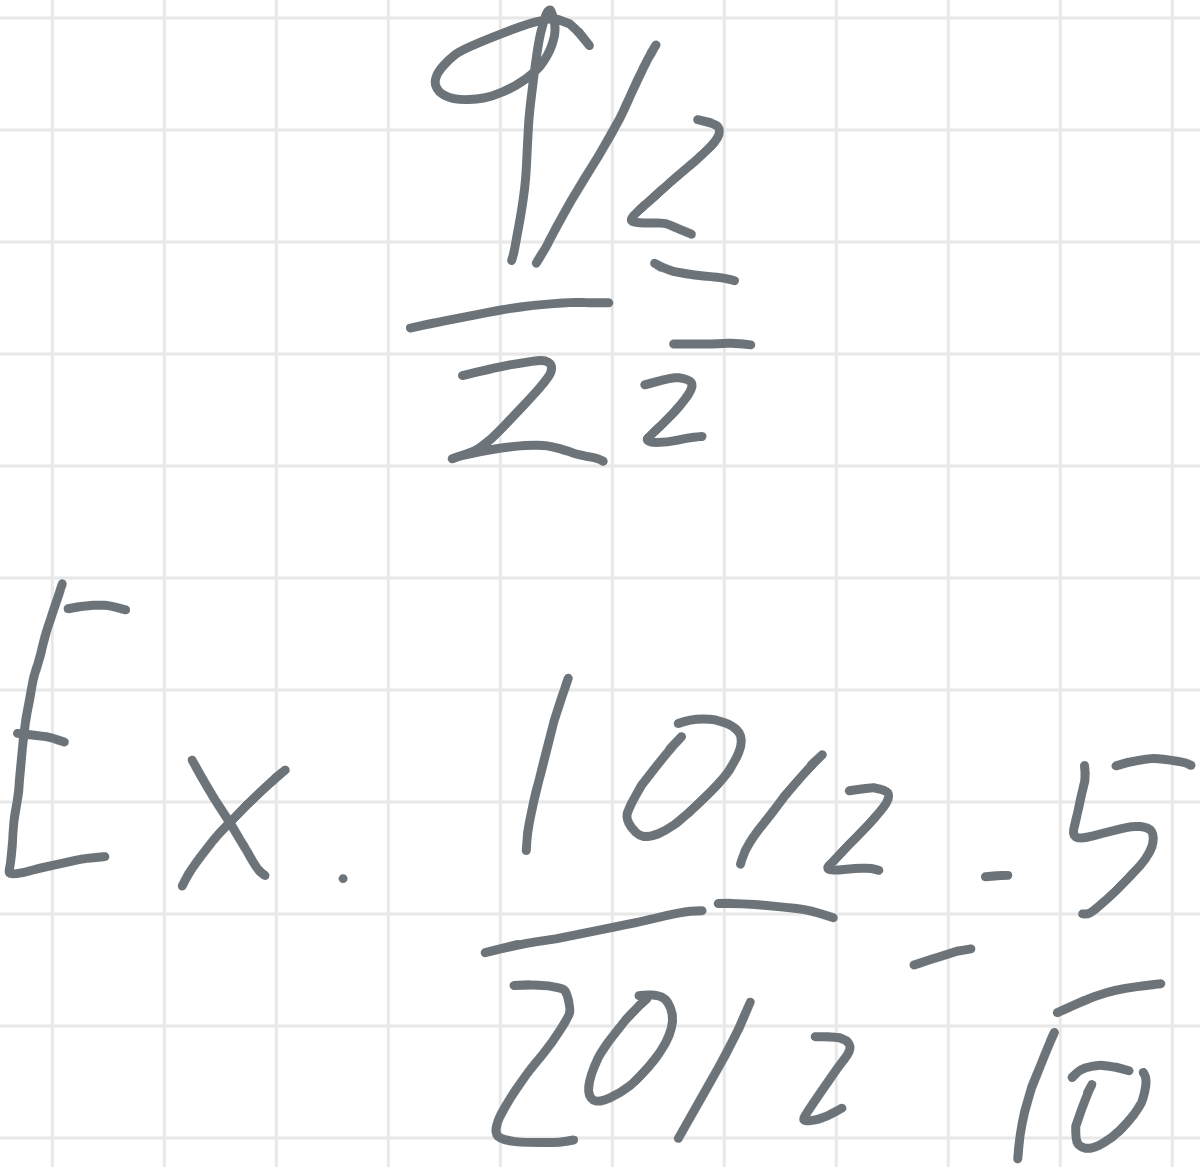 9/2 =
2 2
Ex. 10/2 = 5
20/2 10